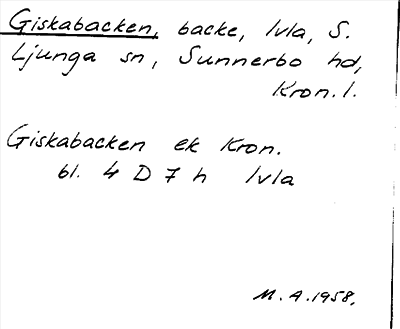 Giskabacken, backe, Ivla, S.
Ljunga sn, Sunnerbo hd,
Kron. l.
Giskabacken ek Kron.
bl. 4 D 7 h Ivla
M. A. 1958.